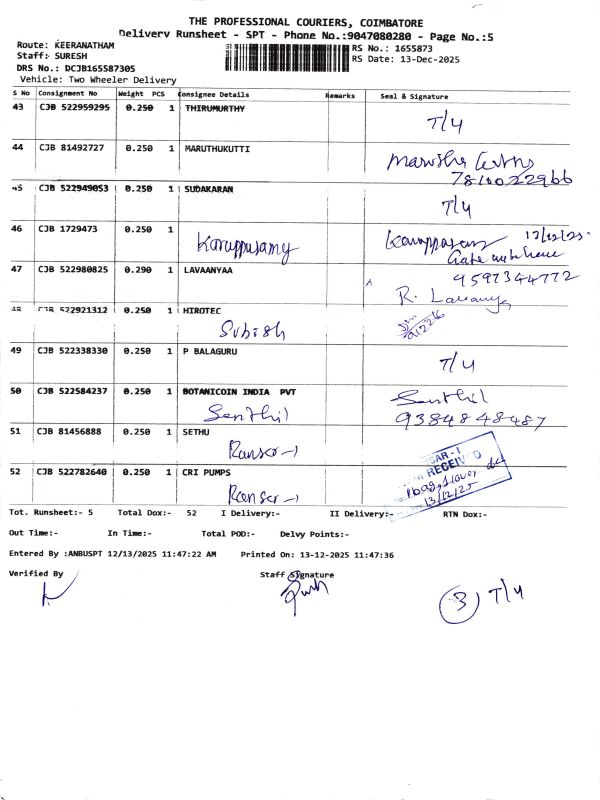 THE PROFESSIONAL COURIERS, COIMBATORE
Delivery Runsheet - SPT - Phone No.:9047080280 - Page No.:5
Route: KEERANATHAM
RS No.: 1655873
Staff: SURESH
RS Date: 13-Dec-2025
DRS No.: DCJB165587305
Vehicle: Two Wheeler Delivery
S No Consignment No Weight PCS Consignee Details Remarks Seal & Signature
43 CJB 522959295 0.250 1 THIRUMURTHY
T/4
44 CJB 81492727 0.250 1 MARUTHUKUTTI
45 CJB 522949053 0.250 1 SUDAKARAN
T/4
46 CJB 1729473 0.250 1
Karuppusamy
47 CJB 522980825 0.290 1 LAVAANYAA
9597344772
R.
48 CJB 522921312 0.250 1 HIROTEC
Subish
49 CJB 522338330 0.250 1 P BALAGURU
T/4
50 CJB 522584237 0.250 1 BOTANICOIN INDIA PVT
Senthil
Senthil
9384848487
51 CJB 81456888 0.250 1 SETHU
52 CJB 522782640 0.250 1 CRI PUMPS
RECEIVED
13/12/25
Tot. Runsheet:- 5 Total Dox:- 52 I Delivery:- II Delivery:- RTN Dox:-
Out Time:- In Time:- Total POD:- Delvy Points:-
Entered By :ANBUSPT 12/13/2025 11:47:22 AM Printed On: 13-12-2025 11:47:36
Verified By Staff Signature
3 T/4